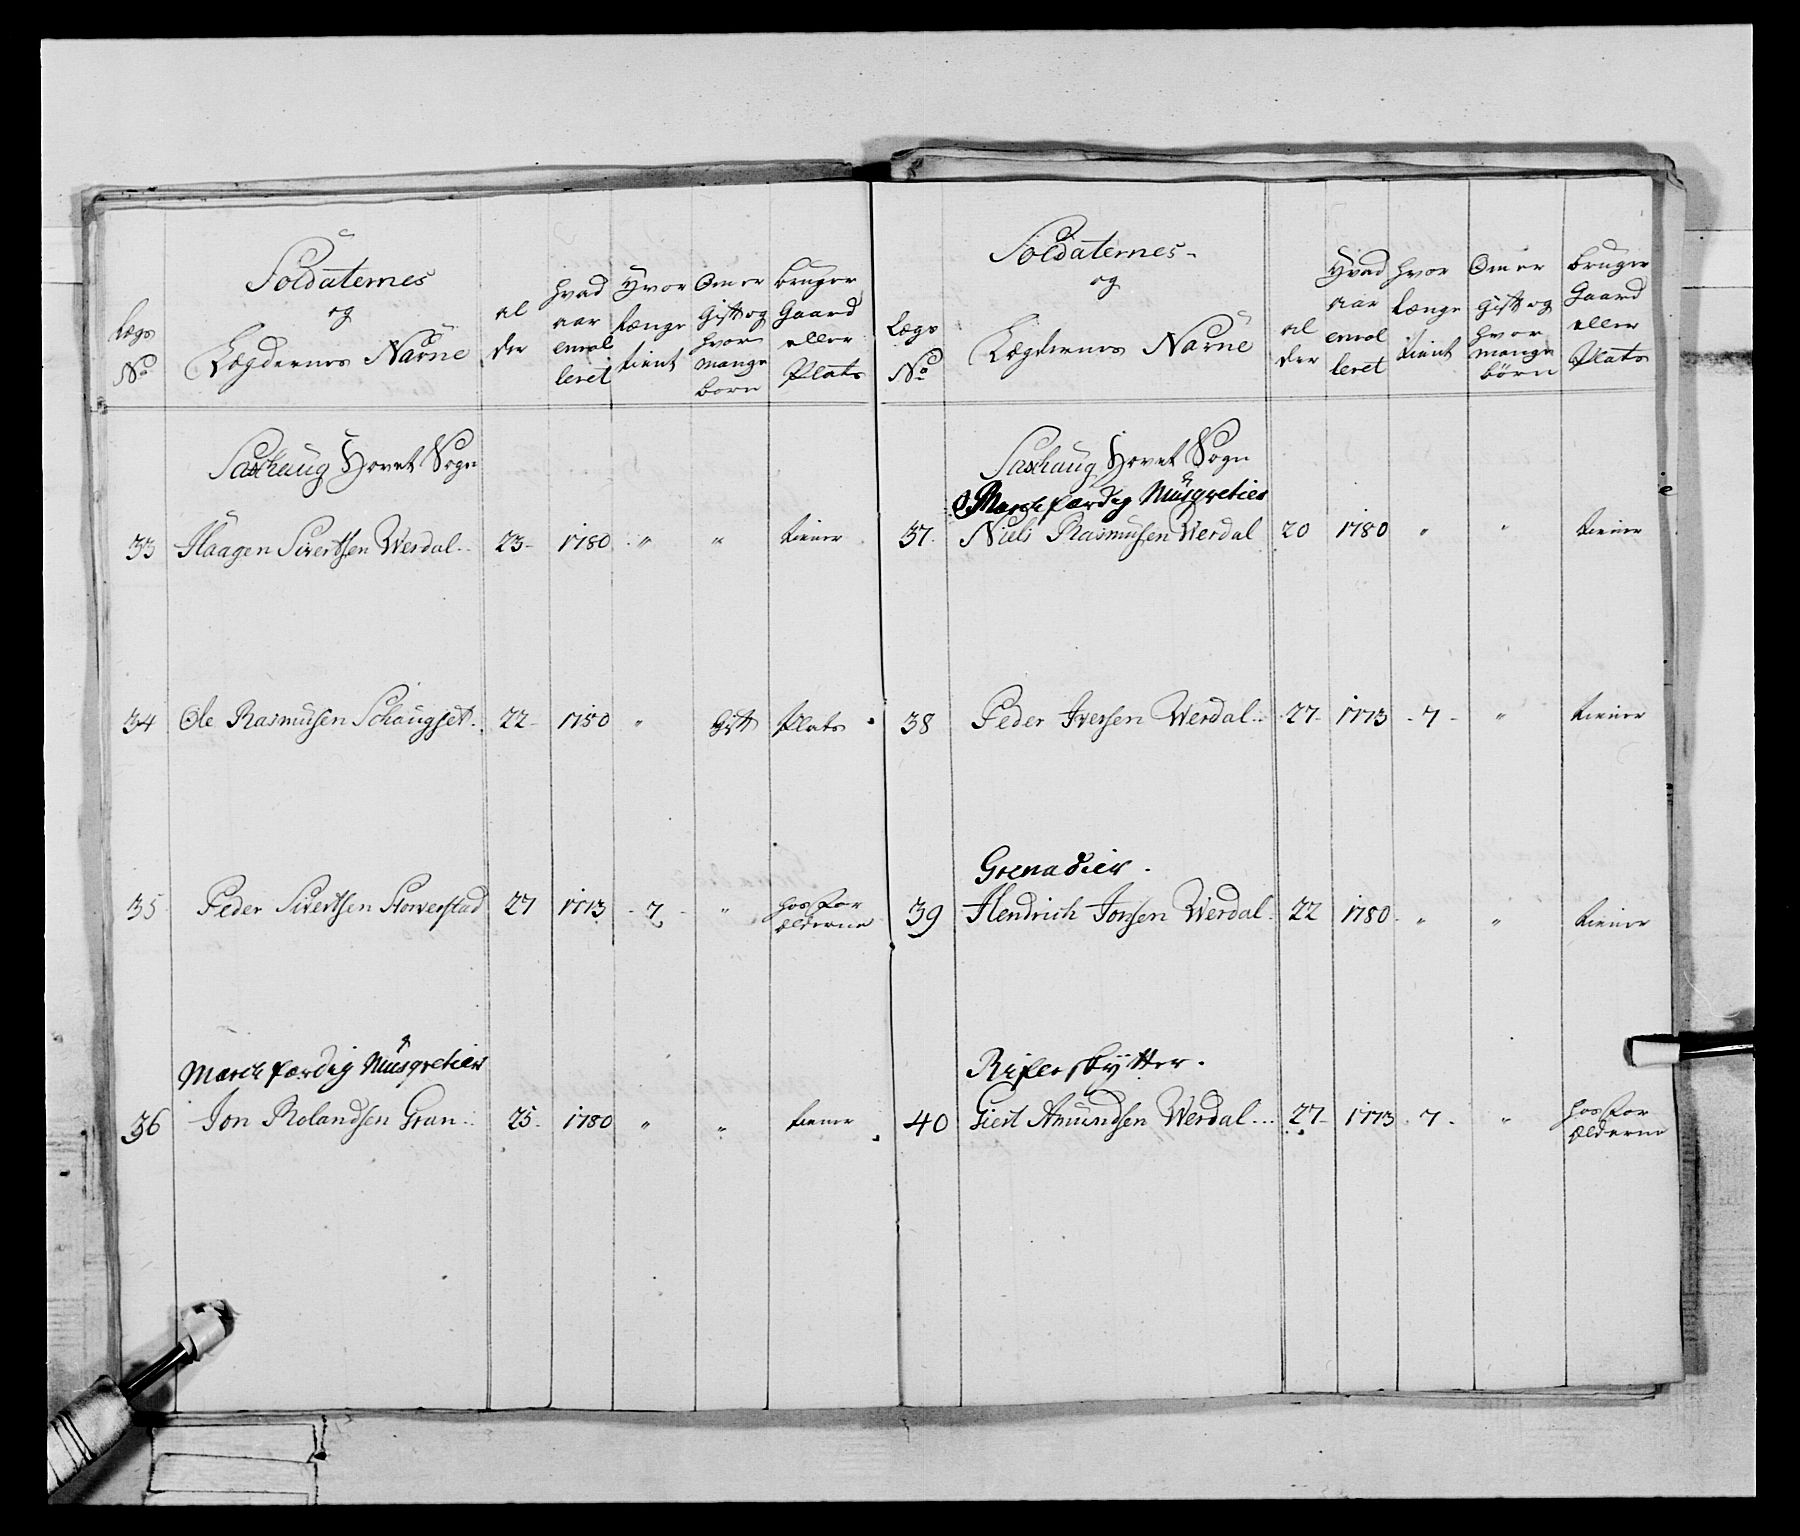 Lægs No
Soldaternes
og
Lægdernes Nafne
al der
hvad aar enrol leret
Hvor længe tient
Om er Gift og hvor mange born
bruger Gaard eller Plats
Saxhaug Hovet Sogn
33 Haagen Sivertsen Werdal 23 1780 " " tiener
34 Ole Rasmusen Schaugset 22 1780 " Gift Plats
35 Peder Sivertsen 27 1773 7 " hos for ælderne
March færdig Musqvetier
36 Jon Rolandsen Gran 25 1780 " " tiener
Lægs No
Soldaternes
og
Lægdernes Nafne
al der
Hvad aar enrol leret
hvor længe tient
Om er gift og hvor mange börn
bruger Gaard eller Plats
Saxhaug Hovet Sogn
March færdig Musqvetier
37 Niels Rasmusen Werdal 20 1780 " " tiener
38 Peder Iversen Werdal 27 1773 7 " tiener
Grenadier.
39 Hendrich Jonsen Werdal 22 1780 " " tiener
Rifleskytter.
40 Giert Amundsen Werdal 27 1773 7 " hos for ælderne